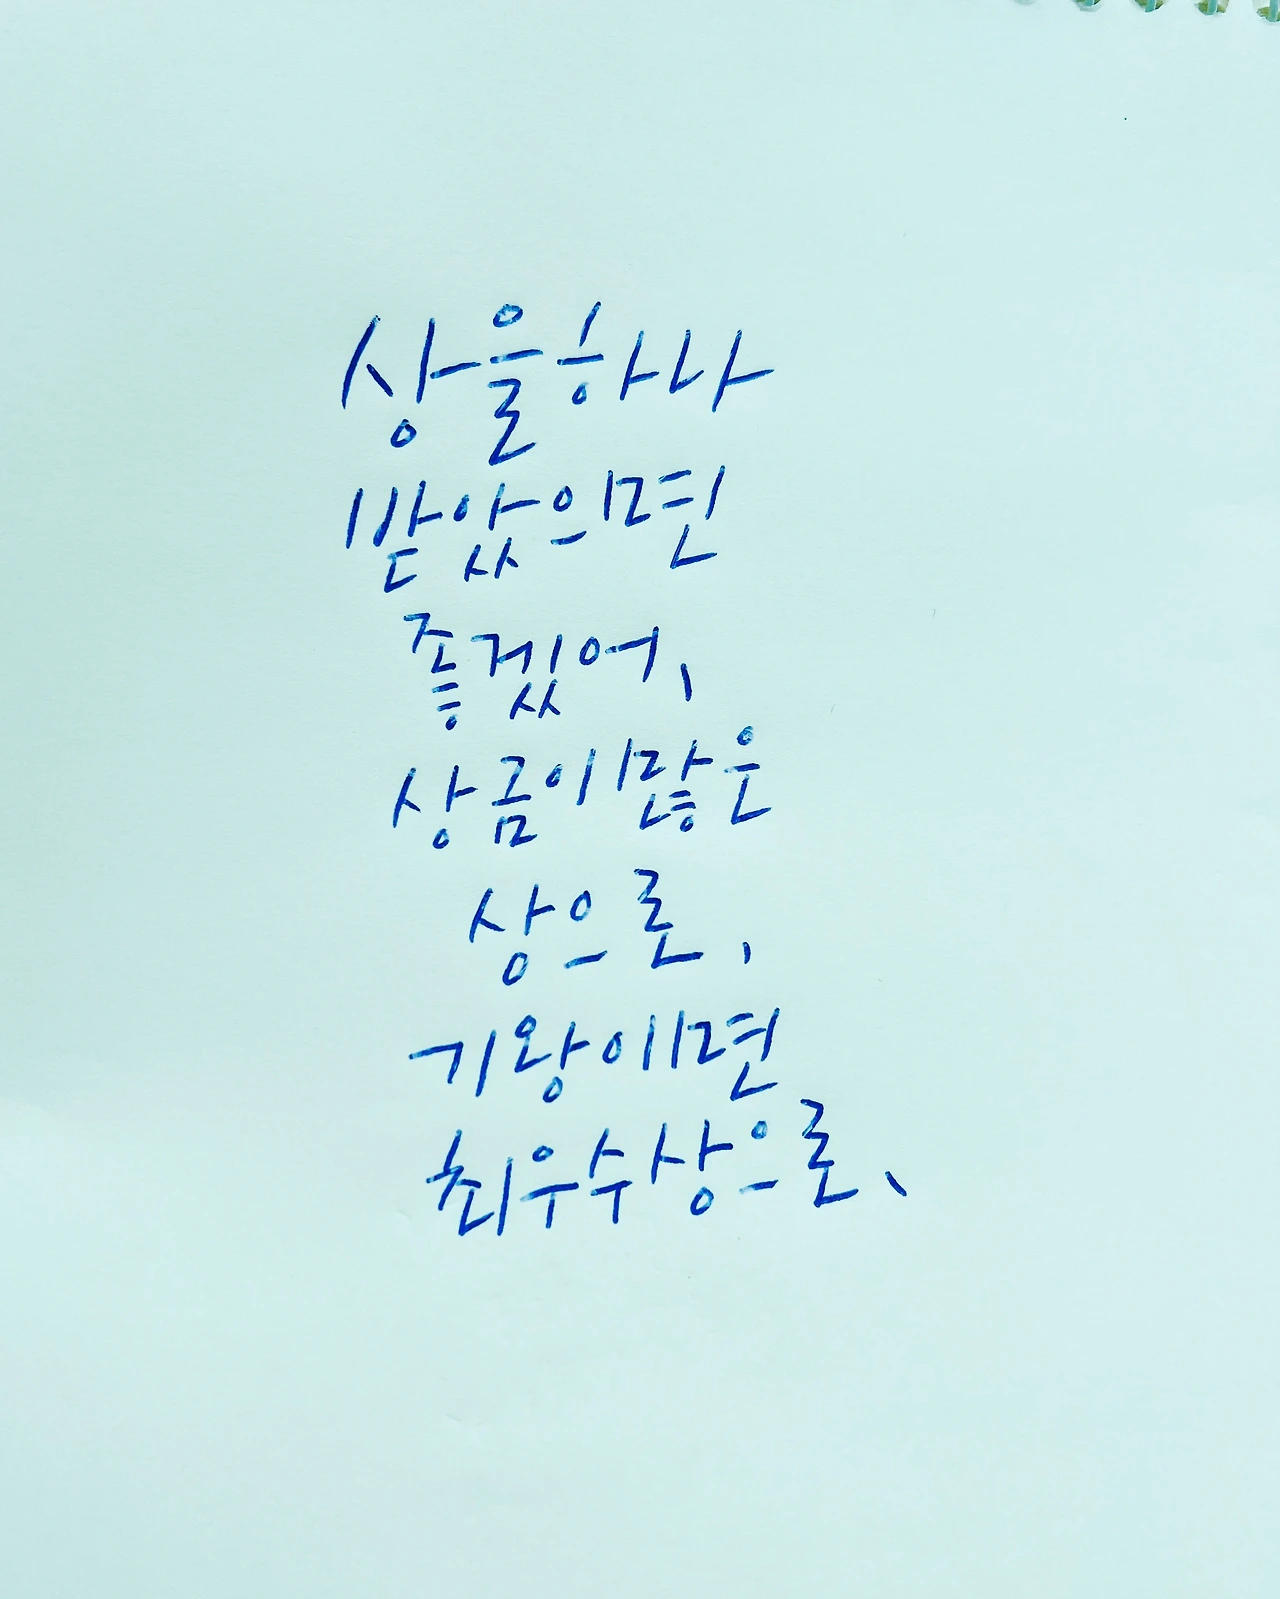 상을하나
받았으면
좋겠어,
상금이많은
상으로,
기왕이면
최우수상으로,